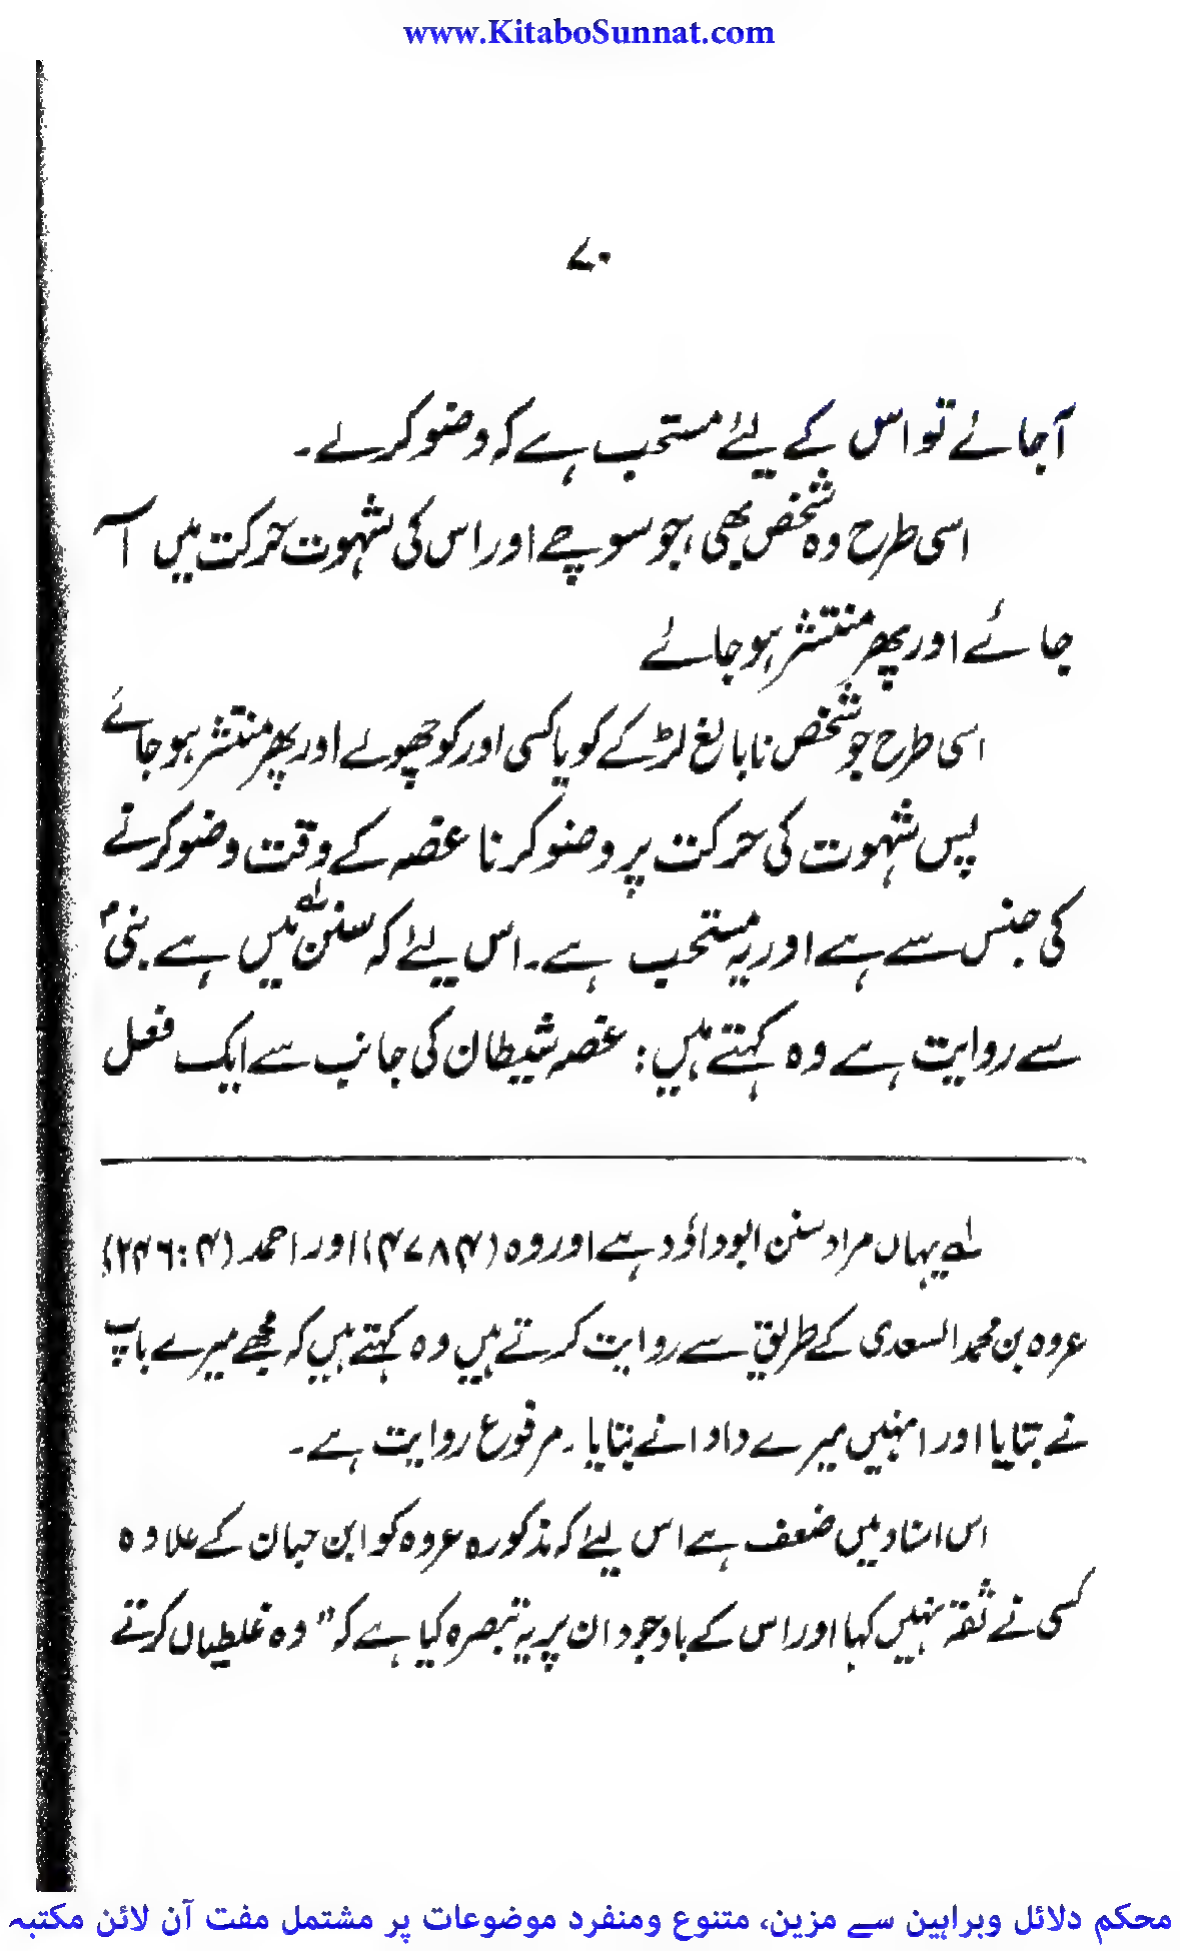 www.KitaboSunnat.com
۷۰
آجائے تو اس کے لیئے مستحب ہے کہ وضو کرلے۔
اسی طرح وہ شخص بھی، جو سوچے اور اس کی شہوت حرکت میں آ
جائے اور پھر منتشر ہو جائے
اسی طرح جو شخص نابالغ لڑکے کو یا کسی اور کو چھولے اور پھر منتشر ہو جائے
پس شہوت کی حرکت پر وضو کرنا غصہ کے وقت وضو کرنے
کی جنس سے ہے اور یہ مستحب ہے۔ اس لیئے کہ سنن لہ میں ہے نبیؐ
سے روایت ہے وہ کہتے ہیں: غصہ شیطان کی جانب سے ایک فعل
لہ یہاں مراد سنن ابو داؤد ہے اور وہ (۴۷۸۴) اور احمد (۲۴۶:۴)
عروہ بن محمد السعدی کے طریق سے روایت کرتے ہیں وہ کہتے ہیں کہ مجھے میرے باپ
نے بتایا اور انہیں میرے دادا نے بتایا۔ مرفوع روایت ہے۔
اس اسناد میں ضعف ہے اس لیئے کہ مذکورہ عروہ کو ابن حبان کے علاوہ
کسی نے ثقہ نہیں کہا اور اس کے باوجود ان پر یہ تبصرہ کیا ہے کہ "وہ غلطیاں کرتے
محکم دلائل وبراہین سے مزین، متنوع ومنفرد موضوعات پر مشتمل مفت آن لائن مکتبہ